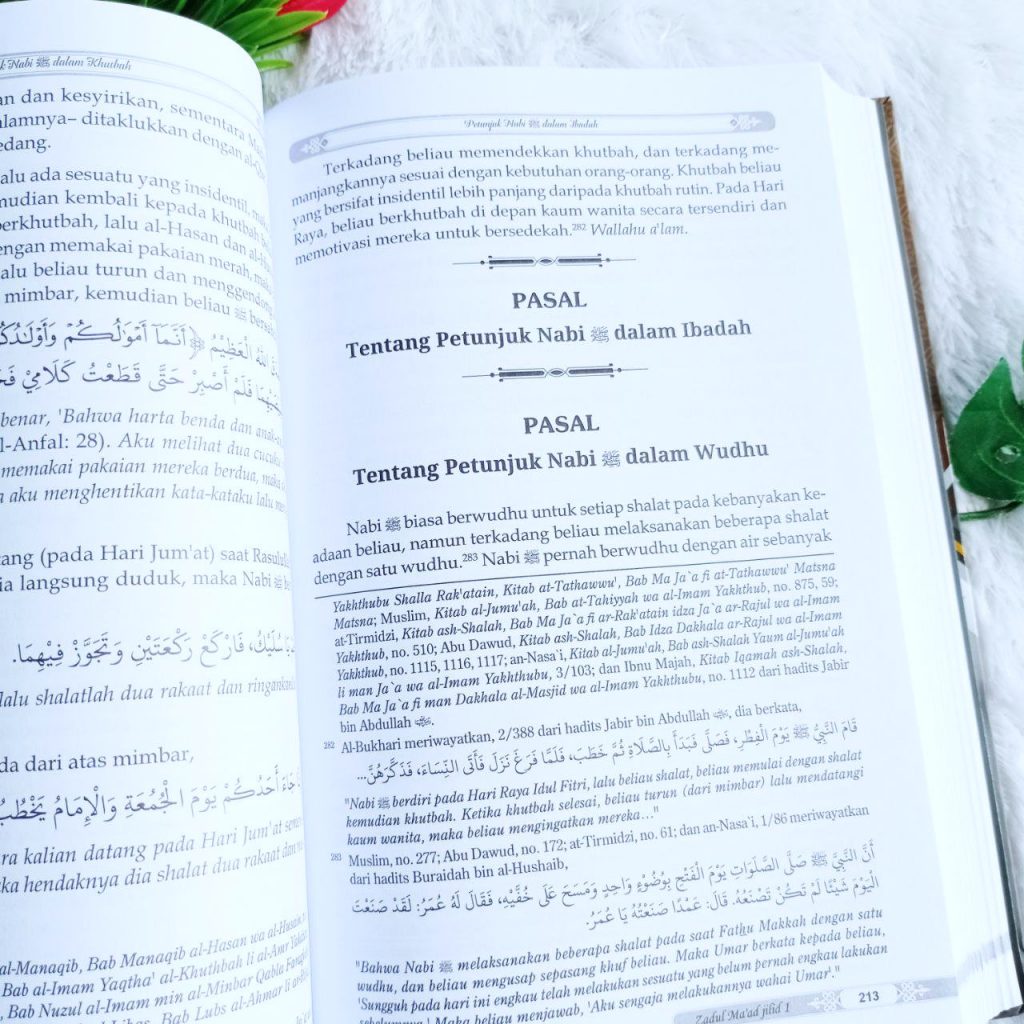 Nabi ﷺ dalam Khutbah
an dan kesyirikan, sementara
alamnya– ditaklukkan dengan
edang.
alu ada sesuatu yang insidentil,
mudian kembali kepada khutbah
berkhutbah, lalu al-Hasan dan
engan memakai pakaian merah,
alu beliau turun dan menggendong
mimbar, kemudian beliau ﷺ
اللهُ الْعَظِيْمُ ﴿ أَنَّمَآ أَمْوَٰلُكُمْ
فَلَمْ أَصْبِرْ حَتَّى قَطَعْتُ كَلَامِيْ
benar, 'Bahwa harta benda dan
l-Anfal: 28). Aku melihat dua cucuku
memakai pakaian mereka berdua,
a aku menghentikan kata-kataku lalu
ang (pada Hari Jum'at) saat
ia langsung duduk, maka Nabi ﷺ
يَا سُلَيْكُ، فَارْكَعْ رَكْعَتَيْنِ وَتَجَوَّزْ فِيْهِمَا.
lalu shalatlah dua rakaat dan
da dari atas mimbar,
جَاءَ أَحَدُكُمْ يَوْمَ الْجُمُعَةِ وَالْإِمَامُ يَخْطُبُ
ra kalian datang pada Hari Jum'at
ka hendaknya dia shalat dua rakaat dan
al-Manaqib, Bab Manaqib al-Hasan wa al-Husain,
Bab al-Imam Yaqtha' al-Khuthbah li al-Amr
Bab Nuzul al-Imam min al-Minbar Qabla
Bab Lubs al-Ahmar li
Petunjuk Nabi ﷺ dalam Ibadah
Terkadang beliau memendekkan khutbah, dan terkadang me-
manjangkannya sesuai dengan kebutuhan orang-orang. Khutbah beliau
yang bersifat insidentil lebih panjang daripada khutbah rutin. Pada Hari
Raya, beliau berkhutbah di depan kaum wanita secara tersendiri dan
memotivasi mereka untuk bersedekah.²⁸² Wallahu a'lam.
PASAL
Tentang Petunjuk Nabi ﷺ dalam Ibadah
PASAL
Tentang Petunjuk Nabi ﷺ dalam Wudhu
Nabi ﷺ biasa berwudhu untuk setiap shalat pada kebanyakan ke-
adaan beliau, namun terkadang beliau melaksanakan beberapa shalat
dengan satu wudhu.²⁸³ Nabi ﷺ pernah berwudhu dengan air sebanyak
Yakhthubu Shalla Rak'atain, Kitab at-Tathawwu', Bab Ma Ja`a fi at-Tathawwu' Matsna
Matsna; Muslim, Kitab al-Jumu'ah, Bab at-Tahiyyah wa al-Imam Yakhthub, no. 875, 59;
at-Tirmidzi, Kitab ash-Shalah, Bab Ma Ja`a fi ar-Rak'atain idza Ja`a ar-Rajul wa al-Imam
Yakhthub, no. 510; Abu Dawud, Kitab ash-Shalah, Bab Idza Dakhala ar-Rajul wa al-Imam
Yakhthub, no. 1115, 1116, 1117; an-Nasa`i, Kitab al-Jumu'ah, Bab ash-Shalah Yaum al-Jumu'ah
li man Ja`a wa al-Imam Yakhthubu, 3/103; dan Ibnu Majah, Kitab Iqamah ash-Shalah,
Bab Ma Ja`a fi man Dakhala al-Masjid wa al-Imam Yakhthubu, no. 1112 dari hadits Jabir
bin Abdullah
²⁸² Al-Bukhari meriwayatkan, 2/388 dari hadits Jabir bin Abdullah, dia berkata,
قَامَ النَّبِيُّ ﷺ يَوْمَ الْفِطْرِ، فَصَلَّى فَبَدَأَ بِالصَّلَاةِ ثُمَّ خَطَبَ، فَلَمَّا فَرَغَ نَزَلَ فَأَتَى النِّسَاءَ، فَذَكَّرَهُنَّ...
"Nabi ﷺ berdiri pada Hari Raya Idul Fitri, lalu beliau shalat, beliau memulai dengan shalat
kemudian khutbah. Ketika khutbah selesai, beliau turun (dari mimbar) lalu mendatangi
kaum wanita, maka beliau mengingatkan mereka..."
²⁸³ Muslim, no. 277; Abu Dawud, no. 172; at-Tirmidzi, no. 61; dan an-Nasa`i, 1/86 meriwayatkan
dari hadits Buraidah bin al-Hushaib,
أَنَّ النَّبِيَّ ﷺ صَلَّى الصَّلَوَاتِ يَوْمَ الْفَتْحِ بِوُضُوْءٍ وَاحِدٍ وَمَسَحَ عَلَى خُفَّيْهِ، فَقَالَ لَهُ عُمَرُ: لَقَدْ صَنَعْتَ
الْيَوْمَ شَيْئًا لَمْ تَكُنْ تَصْنَعُهُ. قَالَ: عَمْدًا صَنَعْتُهُ يَا عُمَرُ.
"Bahwa Nabi ﷺ melaksanakan beberapa shalat pada saat Fathu Makkah dengan satu
wudhu, dan beliau mengusap sepasang khuf beliau. Maka Umar berkata kepada beliau,
'Sungguh pada hari ini engkau telah melakukan sesuatu yang belum pernah engkau lakukan
sebelumnya'. Maka beliau menjawab, 'Aku sengaja melakukannya wahai Umar'."
Zadul Ma'ad jilid 1
213